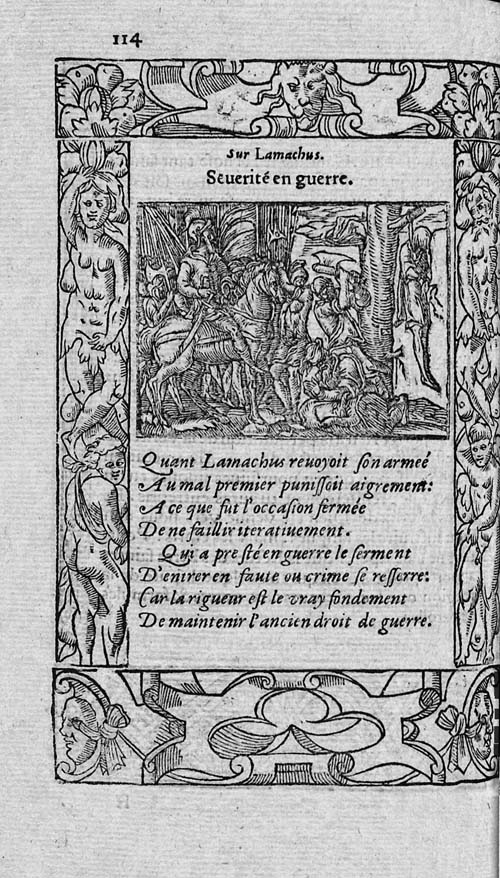 114
Sur Lamachus.
Seuerité en guerre.
Quant Lamachus reuoyoit ſon armeé
Au mal premier puniſſoit aigrement:
A ce que fut l'occaſion fermée
De ne faillir iteratiuement.
Qui a preſté en guerre le ſerment
D'entrer en faute ou crime ſe reſſerre:
Car la rigueur eſt le vray fondement
De maintenir l'ancien droit de guerre.